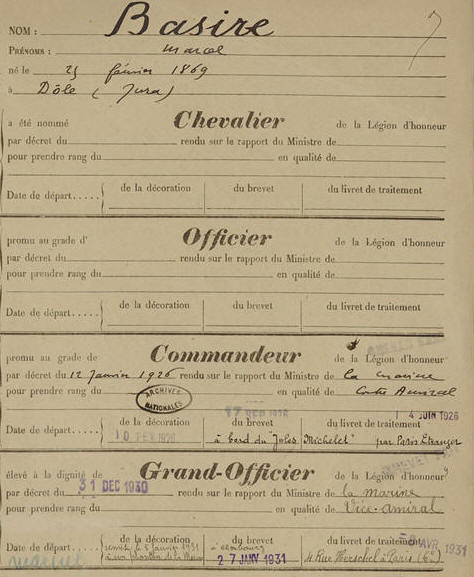 NOM : Basire
PRÉNOMS : Marcel
né le 25 février 1869
à Dôle (Jura)
a été nommé Chevalier de la Légion d'honneur
par décret du rendu sur le rapport du Ministre de
pour prendre rang du en qualité de
Date de départ..... de la décoration du brevet du livret de traitement
promu au grade d' Officier de la Légion d'honneur
par décret du rendu sur le rapport du Ministre de
pour prendre rang du en qualité de
Date de départ..... de la décoration du brevet du livret de traitement
promu au grade de Commandeur de la Légion d'honneur
par décret du 12 Janvier 1926 rendu sur le rapport du Ministre de la marine
pour prendre rang du en qualité de Contre Amiral
ARCHIVES NATIONALES
de la décoration du brevet du livret de traitement
14 JUIN 1926
Date de départ..... 10 FEV 1926 à bord du "Jules Michelet" par Paris Etranger
élevé à la dignité de Grand-Officier de la Légion d'honneur
par décret du 31 DEC 1930 rendu sur le rapport du Ministre de la Marine
pour prendre rang du en qualité de Vice-amiral
de la décoration du brevet du livret de traitement
AVR 1931
Date de départ..... remise le 5 janvier 1931 27 JANV 1931 4 Rue Herschel à Paris (6e)